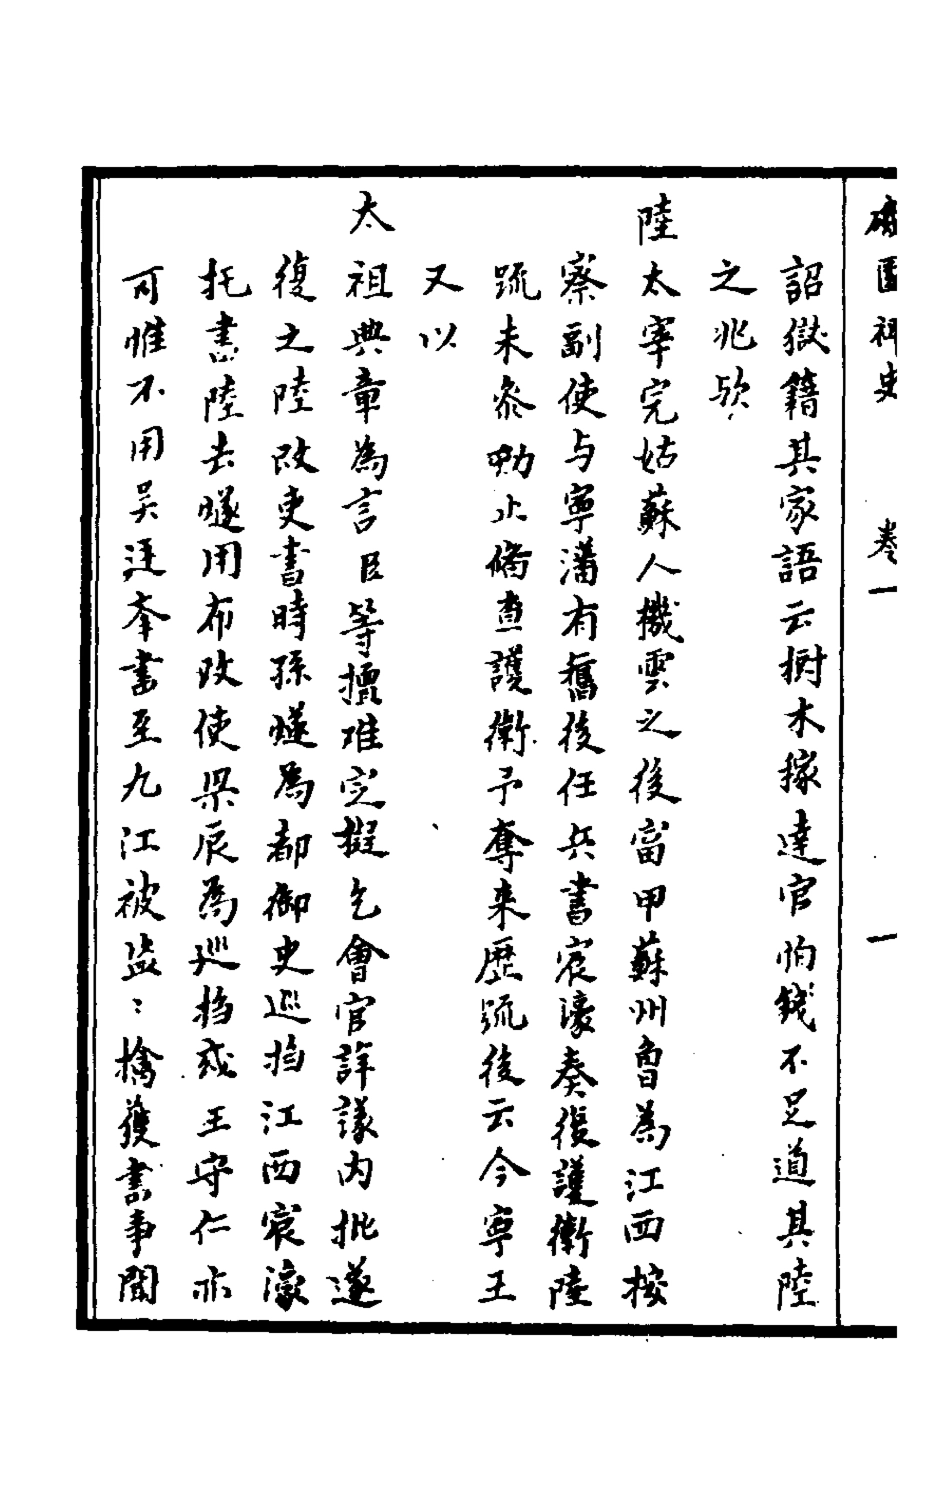 稗史 卷一 一
詔獄籍其家語云樹木稼達官怕錢不足道其陸
之兆欤
陸太宰完姑蘇人機雲之後富甲蘇州曾為江西按
察副使与寧藩有舊後任兵書宸濠奏復護衛陸
疏未参勅止備查護衛予奪来歷疏後云今寧王
又以
太祖典章為言臣等擅难定擬乞會官詳議内批遂
復之陸改吏書時孫燧為都御史巡撫江西宸濠
托書陸去燧用布政使梁辰為巡撫或王守仁亦
可惟不用吴廷举書至九江被盗：擒獲書事聞